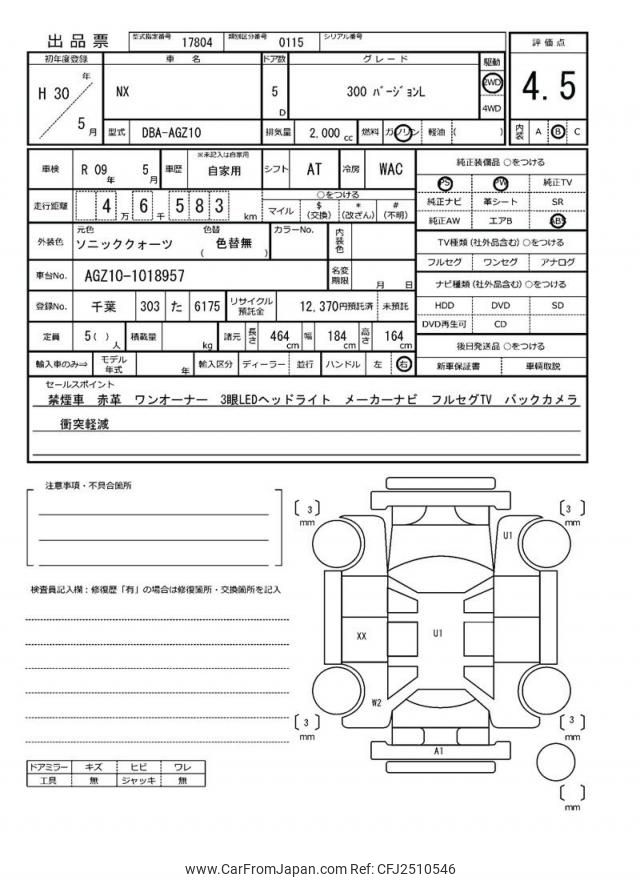 出品票
型式指定番号 17804 類別区分番号 0115 シリアル番号
初年度登録 車名 ドア数 グレード 駆動 評価点
H 30 年 5 月 NX 5 D 300 バージョンL 2WD 4WD 4.5
型式 DBA-AGZ10 排気量 2,000 cc 燃料 ガソリン 軽油 ( ) 内装 A B C
車検 R 09 年 5 月 車歴 ※未記入は自家用 自家用 シフト AT 冷房 WAC
純正装備品 ○をつける
PS PW 純正TV
純正ナビ 革シート SR
純正AW エアB ABS
走行距離 4 万 6 千 5 8 3 km ○をつける
マイル $ (交換) * (改ざん) # (不明)
外装色 元色 ソニッククォーツ 色替 ( 色替無 ) カラーNo. 内装色
TV種類 (社外品含む) ○をつける
フルセグ ワンセグ アナログ
車台No. AGZ10-1018957 名変期限 月 日
ナビ種類 (社外品含む) ○をつける
HDD DVD SD
DVD再生可 CD
登録No. 千葉 303 た 6175 リサイクル預託金 12,370円預託済 未預託
定員 5 ( ) 人 積載量 kg 諸元 長さ 464 cm 幅 184 cm 高さ 164 cm
後日発送品 ○をつける
新車保証書 車輌取説
輸入車のみ⇒ モデル年式 年 輸入区分 ディーラー 並行 ハンドル 左 右
セールスポイント
禁煙車 赤革 ワンオーナー 3眼LEDヘッドライト メーカーナビ フルセグTV バックカメラ
衝突軽減
注意事項・不具合箇所
検査員記入欄：修復歴「有」の場合は修復箇所・交換箇所を記入
[ 3 ] mm
[ 3 ] mm
U1
XX
U1
W2
[ 3 ] mm
[ 3 ] mm
A1
[ ] mm
ドアミラー キズ ヒビ ワレ
工具 無 ジャッキ 無
www.CarFromJapan.com Ref: CFJ2510546